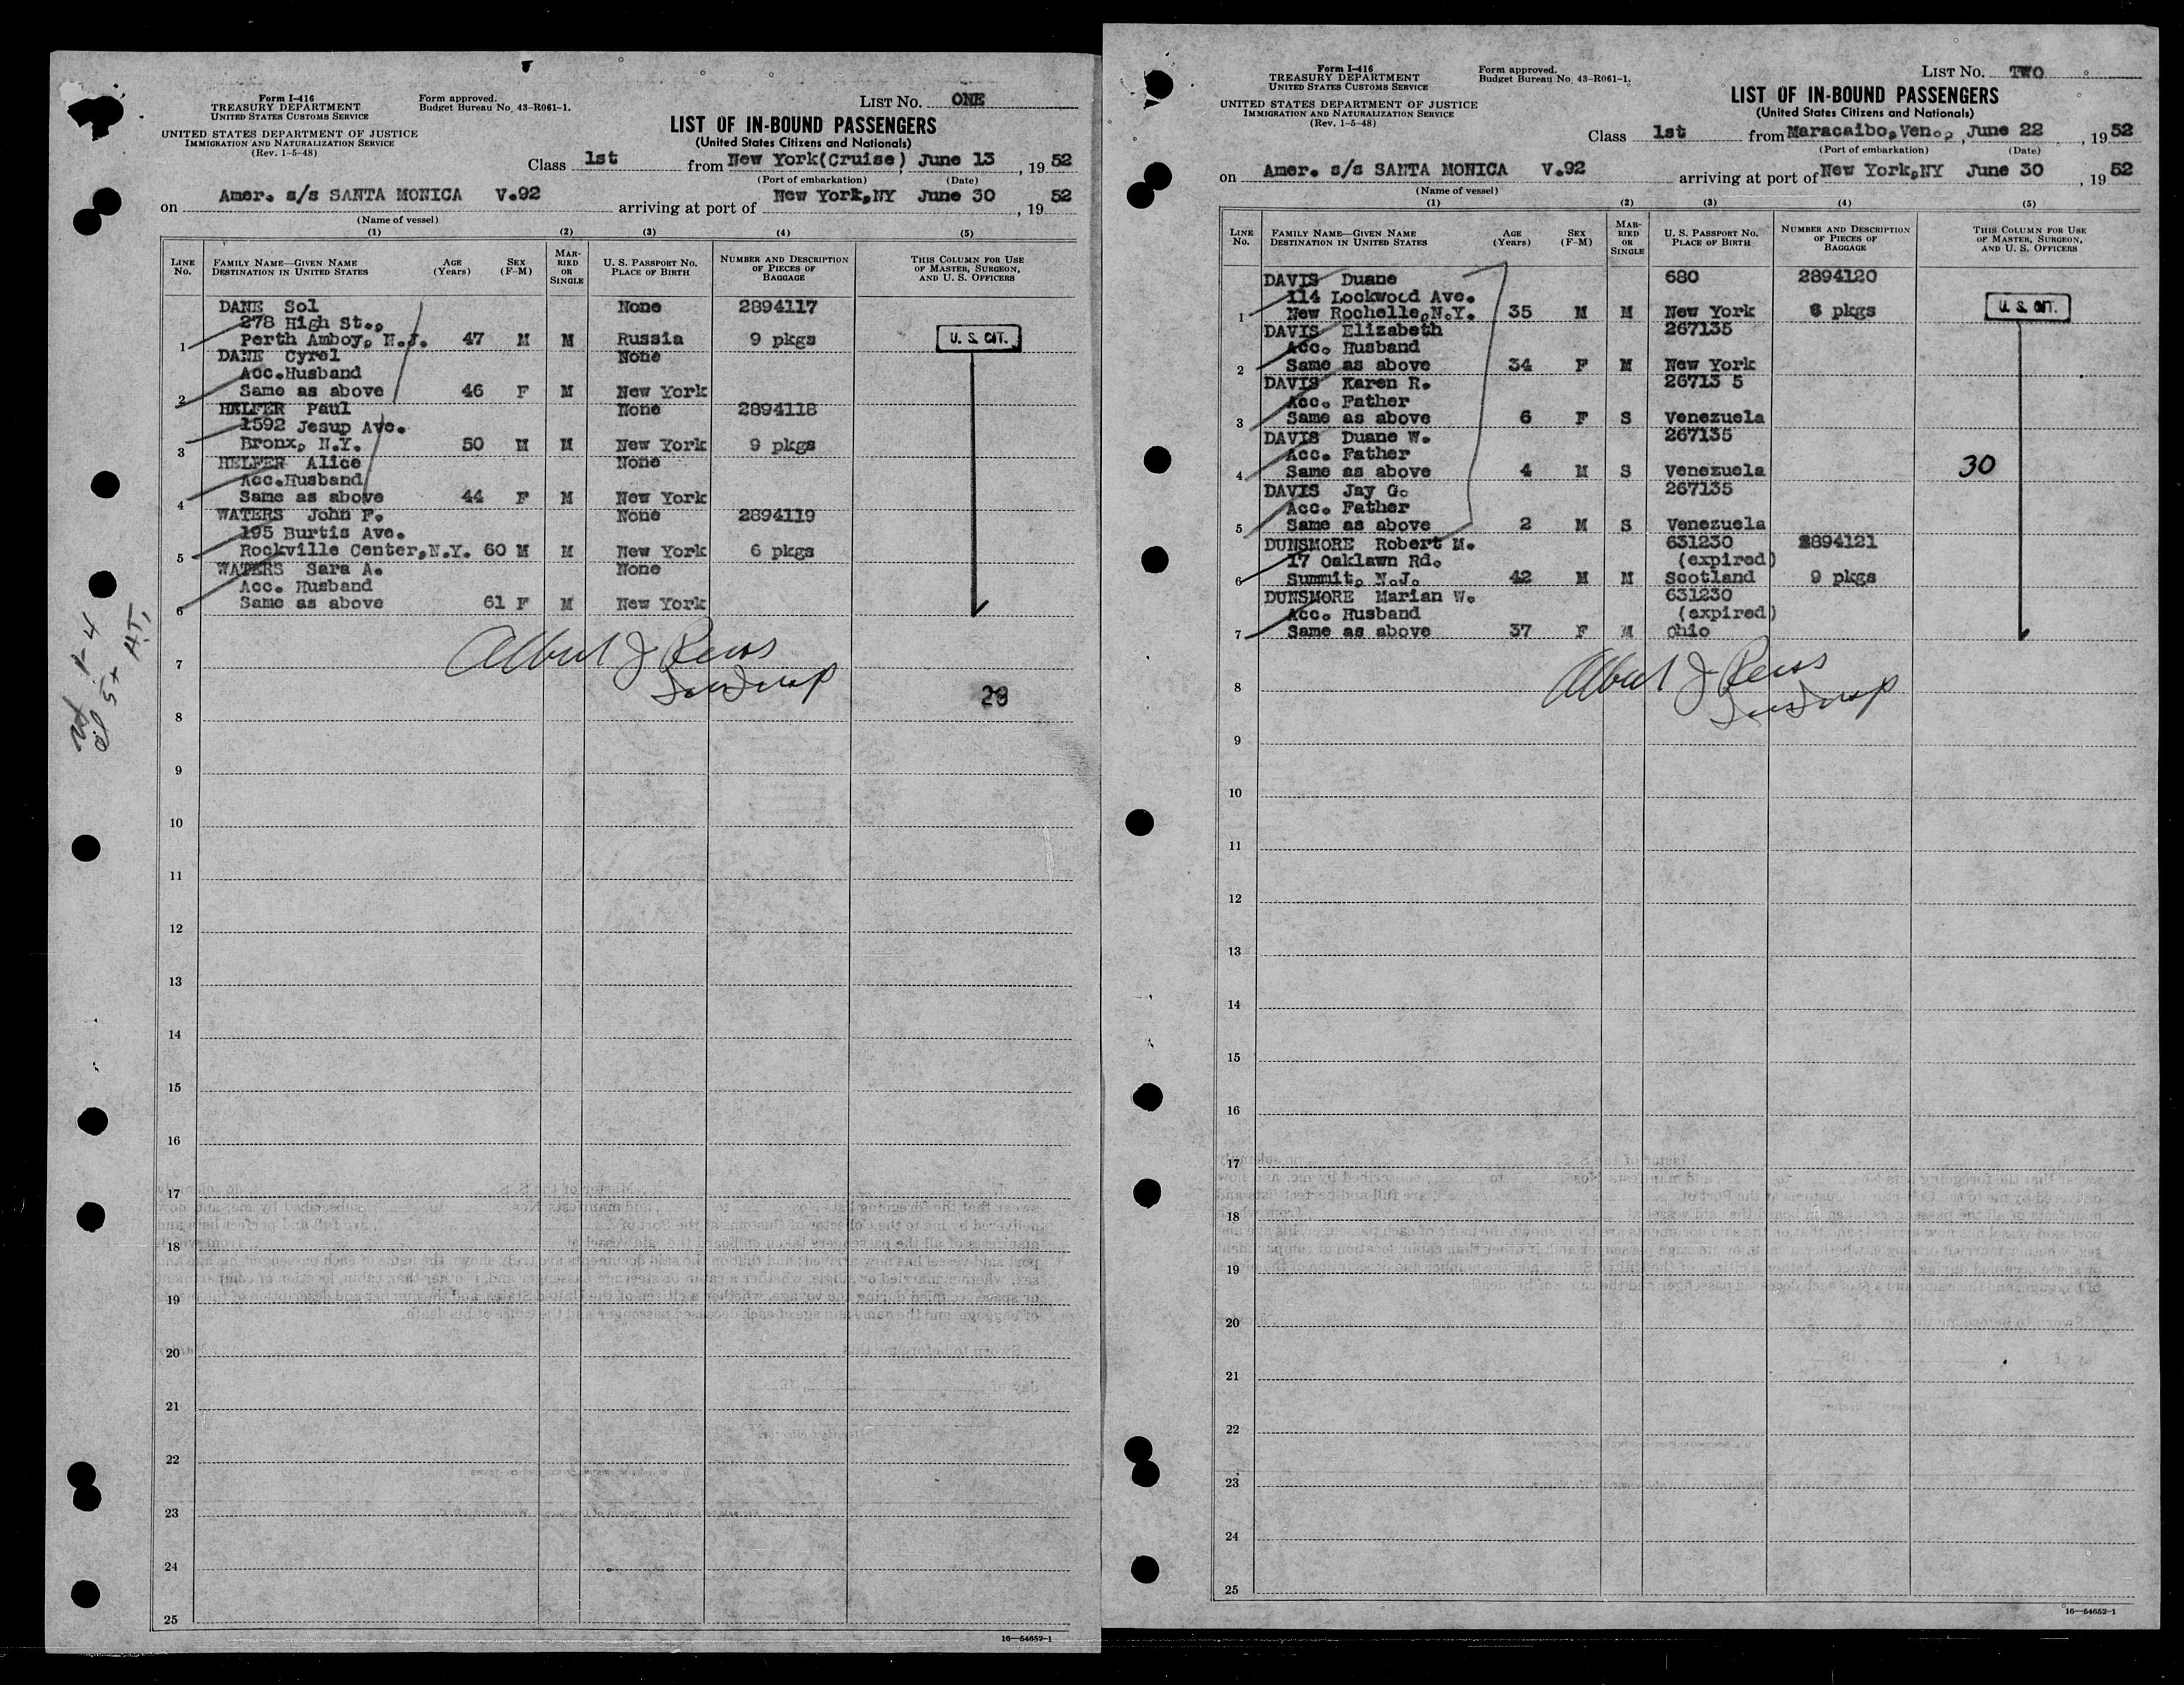 Form I-416
TREASURY DEPARTMENT
UNITED STATES CUSTOMS SERVICE
Form approved.
Budget Bureau No. 43-R061-1.
UNITED STATES DEPARTMENT OF JUSTICE
IMMIGRATION AND NATURALIZATION SERVICE
(Rev. 1-5-48)
LIST NO. ONE
LIST OF IN-BOUND PASSENGERS
(United States Citizens and Nationals)
Class 1st from New York(Cruise) June 13, 1952
(Port of embarkation) (Date)
on Amer. s/s SANTA MONICA V.92 arriving at port of New York,NY June 30, 1952
(Name of vessel)
(1) (2) (3) (4) (5)
LINE NO. FAMILY NAME—GIVEN NAME DESTINATION IN UNITED STATES AGE (Years) SEX (F-M) MARRIED OR SINGLE U. S. PASSPORT NO. PLACE OF BIRTH NUMBER AND DESCRIPTION OF PIECES OF BAGGAGE THIS COLUMN FOR USE OF MASTER, SURGEON, AND U. S. OFFICERS
DANE Sol None 2894117
278 High St.,
1 Perth Amboy, N.J. 47 M M Russia 9 pkgs U. S. CIT.
DANE Cyrel None
Acc.Husband
2 Same as above 46 F M New York
HELFER Paul None 2894118
1592 Jesup Ave.
3 Bronx, N.Y. 50 M M New York 9 pkgs
HELFER Alice None
Acc.Husband
4 Same as above 44 F M New York
WATERS John F. None 2894119
195 Burtis Ave.
5 Rockville Center,N.Y. 60 M M New York 6 pkgs
WATERS Sara A. None
Acc. Husband
6 Same as above 61 F M New York
Albert J Reiss
7
29
8
9
10
11
12
13
14
15
16
17
18
19
20
21
22
23
24
25
16—54652-1
Form I-416
TREASURY DEPARTMENT
UNITED STATES CUSTOMS SERVICE
Form approved.
Budget Bureau No. 43-R061-1.
UNITED STATES DEPARTMENT OF JUSTICE
IMMIGRATION AND NATURALIZATION SERVICE
(Rev. 1-5-48)
LIST NO. TWO
LIST OF IN-BOUND PASSENGERS
(United States Citizens and Nationals)
Class 1st from Maracaibo,Ven., June 22, 1952
(Port of embarkation) (Date)
on Amer. s/s SANTA MONICA V.92 arriving at port of New York,NY June 30, 1952
(Name of vessel)
(1) (2) (3) (4) (5)
LINE NO. FAMILY NAME—GIVEN NAME DESTINATION IN UNITED STATES AGE (Years) SEX (F-M) MARRIED OR SINGLE U. S. PASSPORT NO. PLACE OF BIRTH NUMBER AND DESCRIPTION OF PIECES OF BAGGAGE THIS COLUMN FOR USE OF MASTER, SURGEON, AND U. S. OFFICERS
DAVIS Duane 680 2894120
114 Lockwood Ave.
1 New Rochelle,N.Y. 35 M M New York 6 pkgs U. S. CIT.
DAVIS Elizabeth 267135
Acc. Husband
2 Same as above 34 F M New York
DAVIS Karen R. 26713 5
Acc. Father
3 Same as above 6 F S Venezuela
DAVIS Duane W. 267135
Acc. Father
4 Same as above 4 M S Venezuela 30
DAVIS Jay G. 267135
Acc. Father
5 Same as above 2 M S Venezuela
DUNSMORE Robert M. 631230 2894121
17 Oaklawn Rd. (expired)
6 Summit, N.J. 42 M M Scotland 9 pkgs
DUNSMORE Marian W. 631230
Acc. Husband (expired)
7 Same as above 37 F M Ohio
Albert J Reiss
8
9
10
11
12
13
14
15
16
17
18
19
20
21
22
23
24
25
16—54652-1